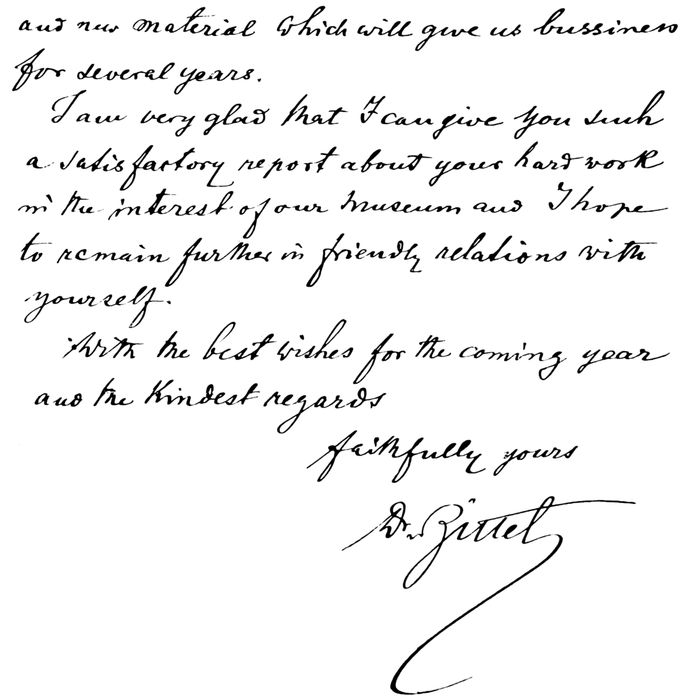 and new material which will give us bussiness
for several years.
I am very glad that I can give you such
a satisfactory report about your hard work
in the interest of our Museum and I hope
to remain further in friendly relations with
yourself.
With the best wishes for the coming year
and the kindest regards
faithfully yours
Dr. Zittel